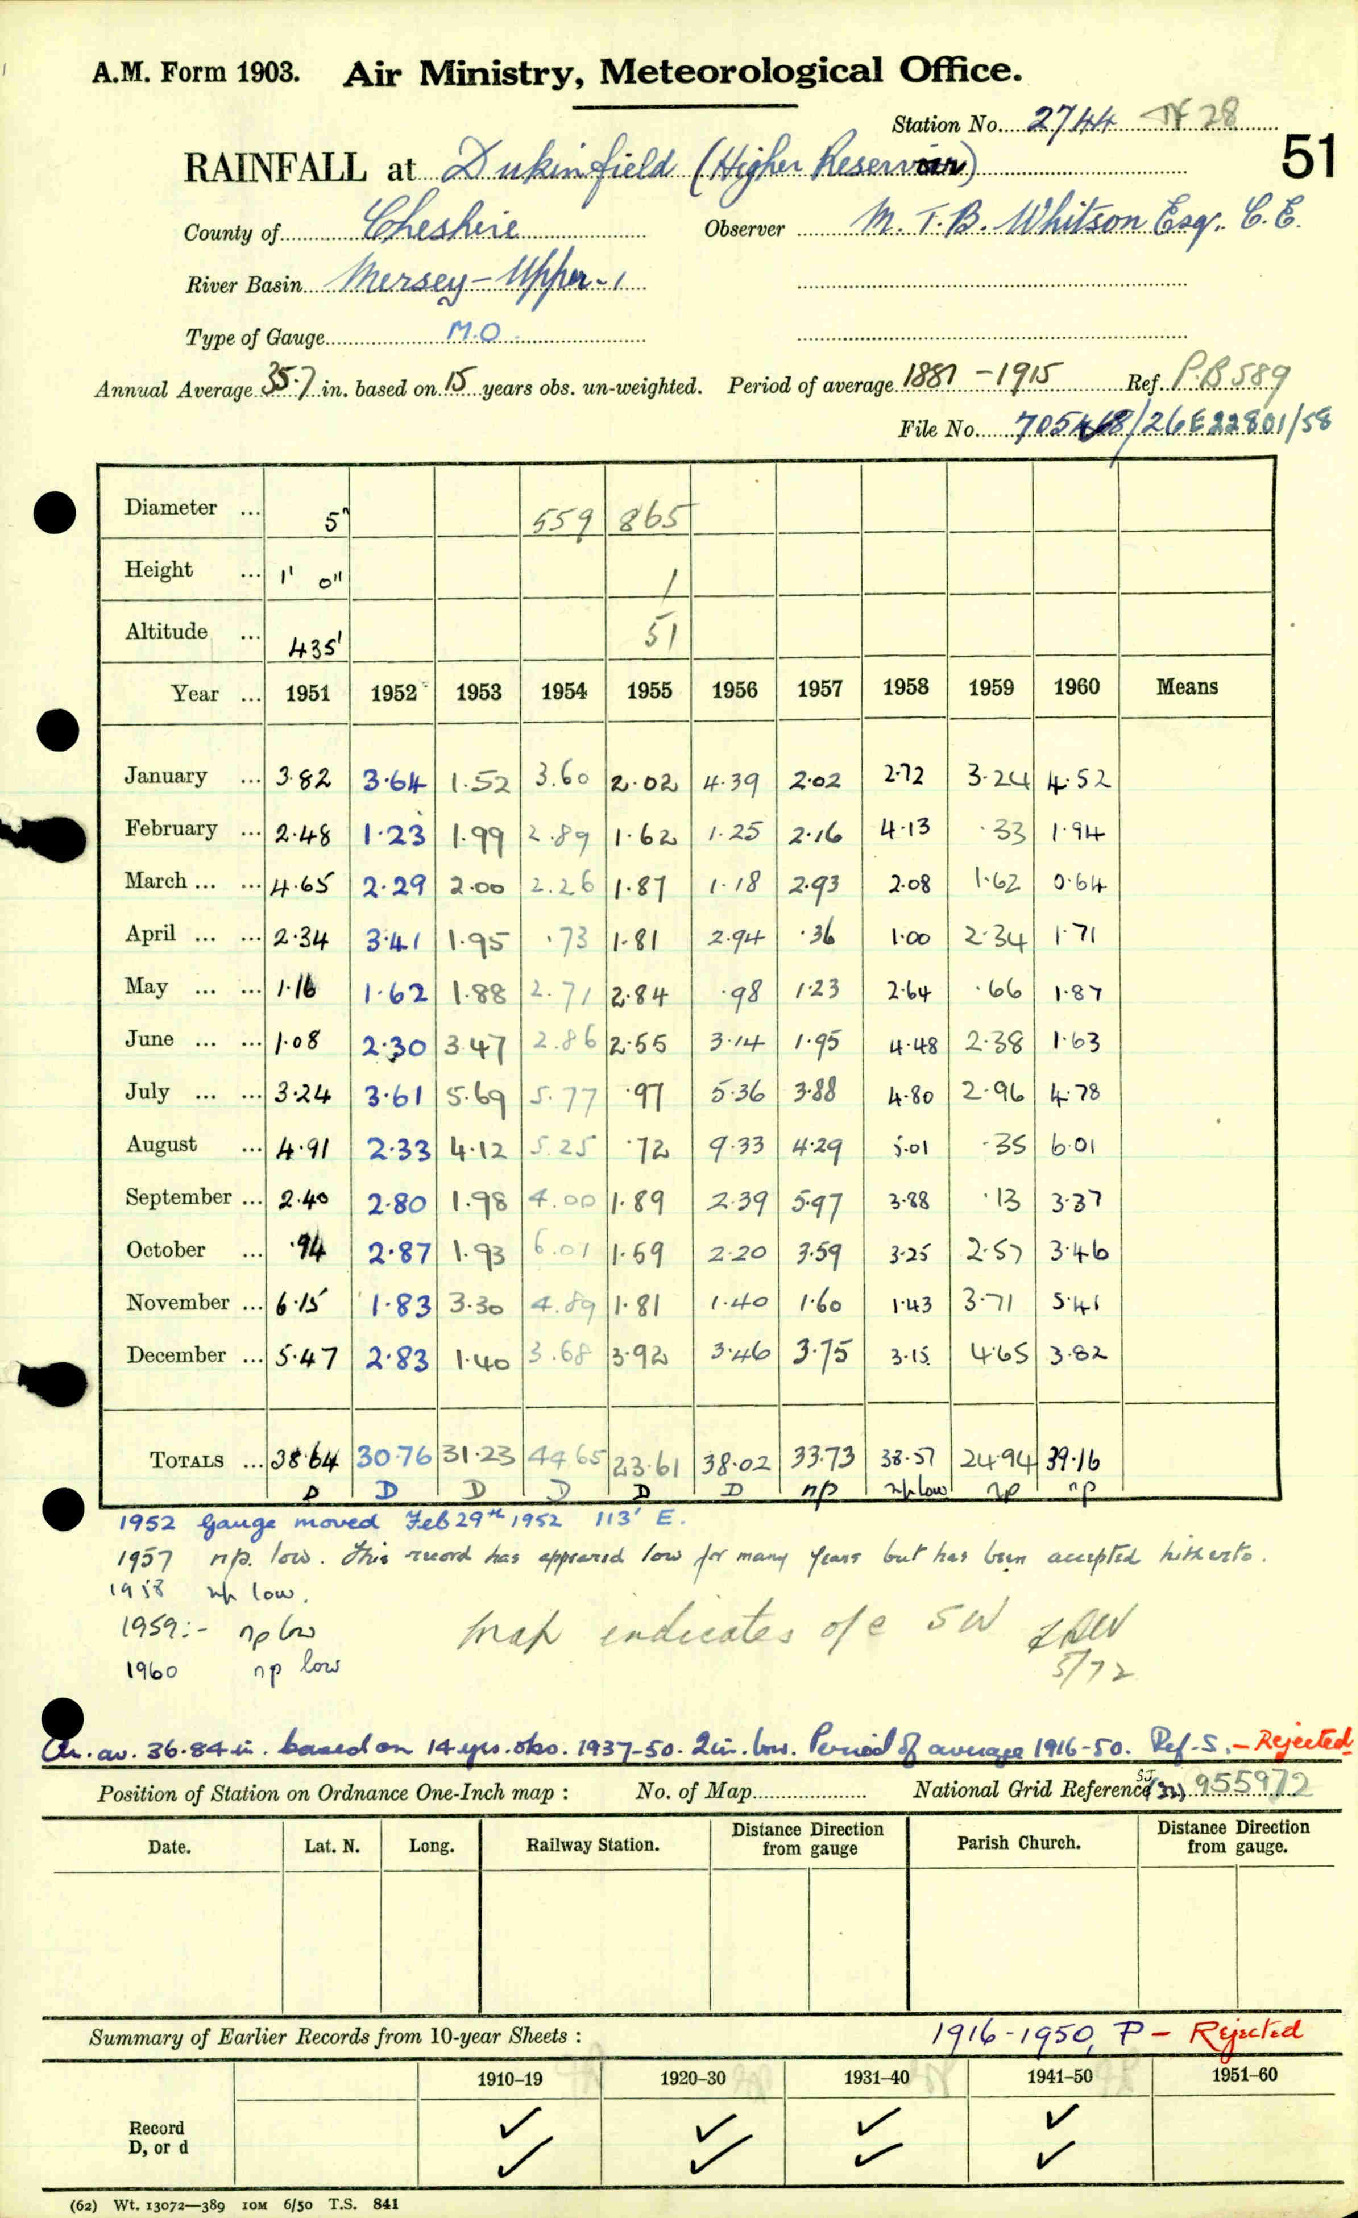 A.M. Form 1903. Air Ministry, Meteorological Office.
Station No. 2744
51
RAINFALL at Dukinfield (Higher Reservoir)
County of Cheshire Observer M. T. B. Whitson Esqr. C.E.
River Basin Mersey - Upper - 1
Type of Gauge M.O.
Annual Average 35.7 in. based on 15 years obs. un-weighted. Period of average 1881 - 1915 Ref. P.B 589
File No.
Diameter ... 5" 559 865
Height ... 1' 0" 1
Altitude ... 435' 51
Year ... 1951 1952 1953 1954 1955 1956 1957 1958 1959 1960 Means
January ... 3.82 3.64 1.52 3.60 2.02 4.39 2.02 2.72 3.24 4.52
February ... 2.48 1.23 1.99 2.89 1.62 1.25 2.16 4.13 .33 1.94
March ... ... 4.65 2.29 2.00 2.26 1.87 1.18 2.93 2.08 1.62 0.64
April ... ... 2.34 3.41 1.95 .73 1.81 2.94 .36 1.00 2.34 1.71
May ... ... 1.16 1.62 1.88 2.71 2.84 .98 1.23 2.64 .66 1.87
June ... ... 1.08 2.30 3.47 2.86 2.55 3.14 1.95 4.48 2.38 1.63
July ... ... 3.24 3.61 5.69 5.77 .97 5.36 3.88 4.80 2.96 4.78
August ... 4.91 2.33 4.12 5.25 .72 9.33 4.29 5.01 .35 6.01
September ... 2.40 2.80 1.98 4.00 1.89 2.39 5.97 3.88 .13 3.37
October ... .94 2.87 1.93 6.01 1.59 2.20 3.59 3.25 2.57 3.46
November ... 6.15 1.83 3.30 4.89 1.81 1.40 1.60 1.43 3.71 5.41
December ... 5.47 2.83 1.40 3.68 3.92 3.46 3.75 3.15 4.65 3.82
TOTALS ... 38.64 30.76 31.23 44.65 23.61 38.02 33.73 38.57 24.94 39.16
D D D D D D np np low np np
1952 Gauge moved Feb 29th 1952 113' E.
1957 np. low. This record has appeared low for many years but has been accepted hitherto.
1958 np low.
1959:- np low
1960 np low
Map indicates o/c SW
5/72
An. av. 36.84 in. based on 14 yrs. obs. 1937-50. 2in. low. Period of average 1916-50. Ref. S. - Rejected
Position of Station on Ordnance One-Inch map : No. of Map National Grid Reference SJ (33) 955972
Date. Lat. N. Long. Railway Station. Distance Direction from gauge Parish Church. Distance Direction from gauge.
Summary of Earlier Records from 10-year Sheets : 1916-1950, P - Rejected
1910-19 1920-30 1931-40 1941-50 1951-60
Record ✓ ✓ ✓ ✓
D, or d ✓ ✓ ✓ ✓
(62) Wt. 13072—389 10M 6/50 T.S. 841